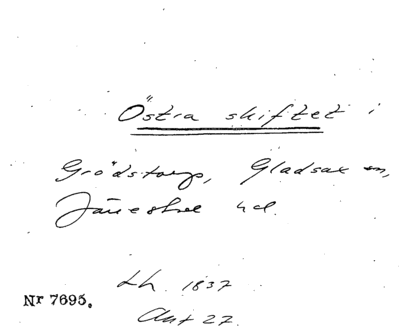 Östra skiftet i
Grödstorp, Gladsax sn,
Järrestad hd.
Lh. 1837
Akt 27.
Nr 7695.